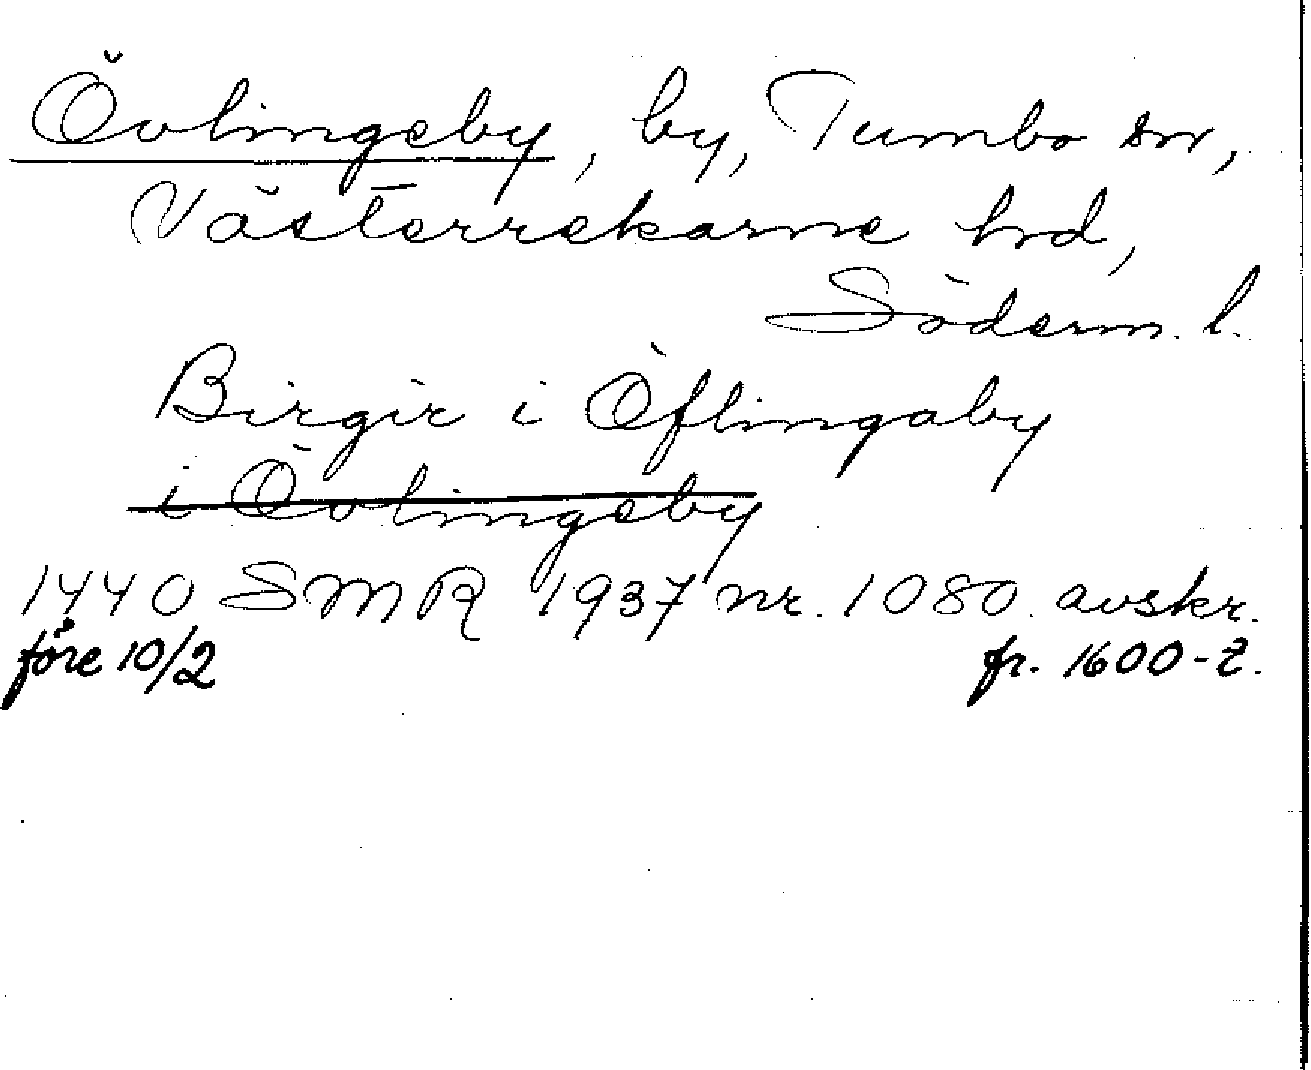 Övlingeby, by, Tumbo sn,
Västerrekarne hrd,
Söderm. l.
Birgir i Öflingaby
i Övlingeby
1440 SMR 1937 nr. 1080. avskr.
före 10/2 fr. 1600-t.